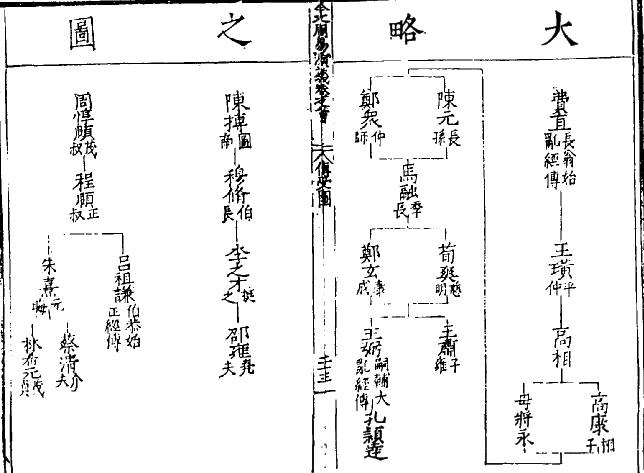 大略之圖
費直 長翁始亂經傳
王璜 平仲
高相
高康 相子
毋將永
陳元 長孫
鄭眾 仲師
馬融 季長
荀爽 慈明
鄭玄 康成
王肅 子雍
王弼 輔嗣大亂經傳
孔穎達
陳摶 圖南
穆脩 伯長
李之才 挺之
邵雍 堯夫
周惇頤 茂叔
程頤 正叔
呂祖謙 伯恭始正經傳
朱熹 元晦
蔡清 介夫
林希元 茂貞